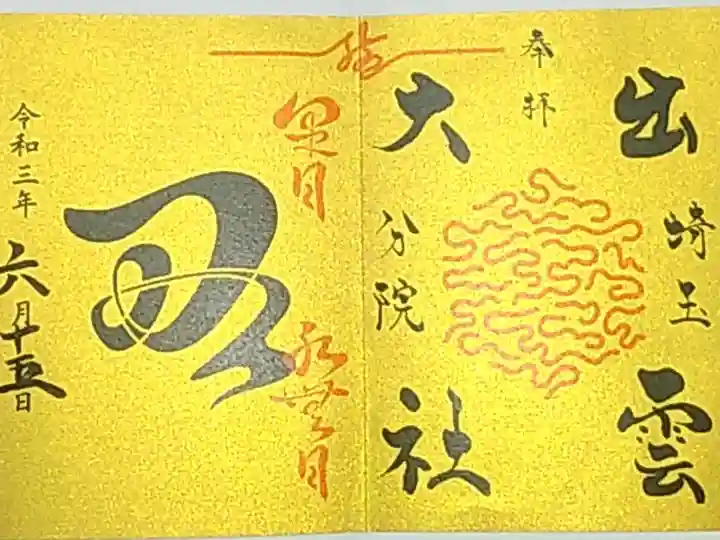 出雲
埼玉
奉拝
大社
分院
結
水無月
令和三年
六月十五日